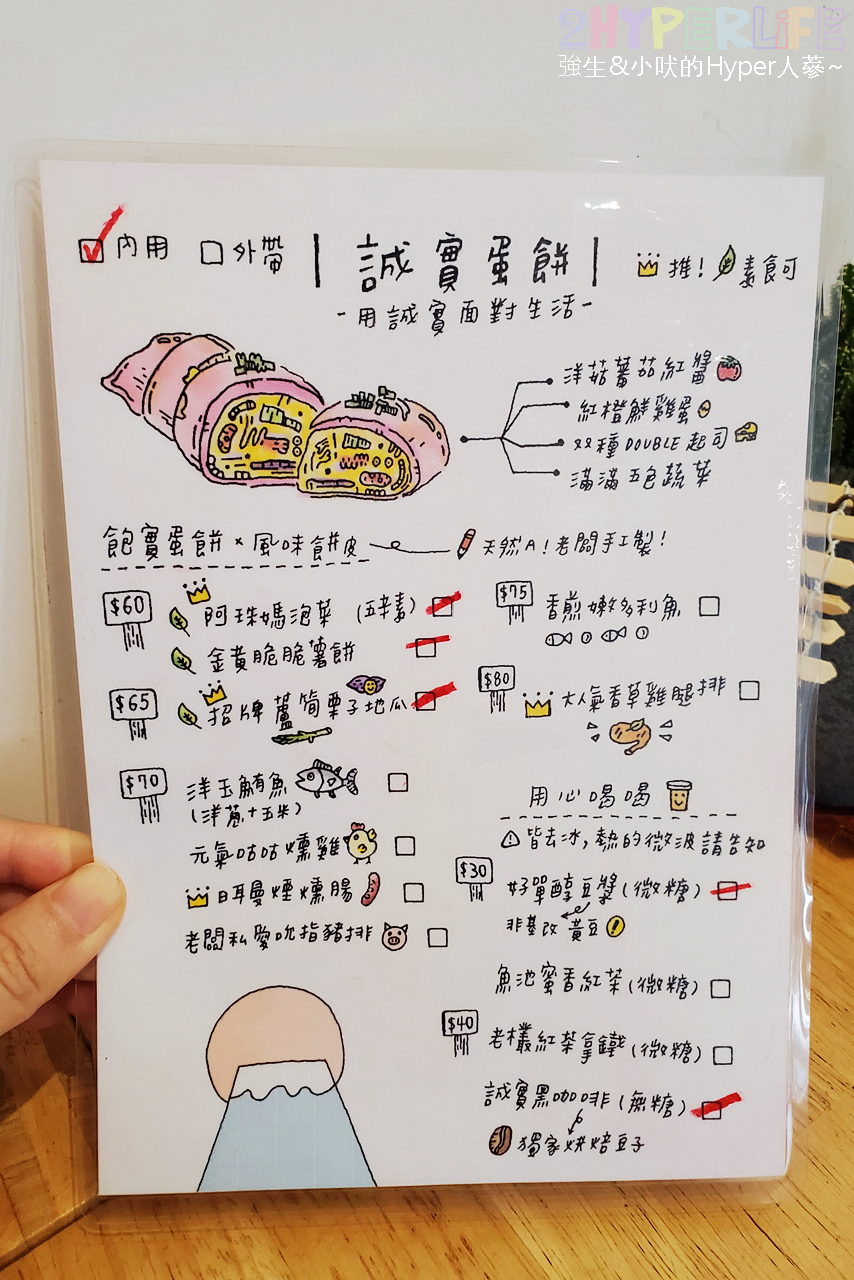 2HYPERLIFE
強生&小吠的Hyper人蔘~
內用 外帶 誠實蛋餅 推! 素食可
-用誠實面對生活-
洋菇蕃茄紅醬
紅橙鮮雞蛋
双種DOUBLE起司
滿滿五色蔬菜
飽實蛋餅×風味餅皮 天然A!老闆手工製!
$60 阿珠媽泡菜 (五辛素)
金黃脆脆薯餅
$65 招牌蘆筍栗子地瓜
$70 洋玉鮪魚
(洋蔥+玉米)
元氣咕咕燻雞
日耳曼煙燻腸
老闆私愛吮指豬排
$75 香煎嫩多利魚
$80 大人氣香草雞腿排
用心喝喝
皆去冰,熱的微波請告知
$30 好單醇豆漿(微糖)
非基改黃豆
魚池蜜香紅茶(微糖)
$40 老欉紅茶拿鐵(微糖)
誠實黑咖啡(無糖)
獨家烘焙豆子